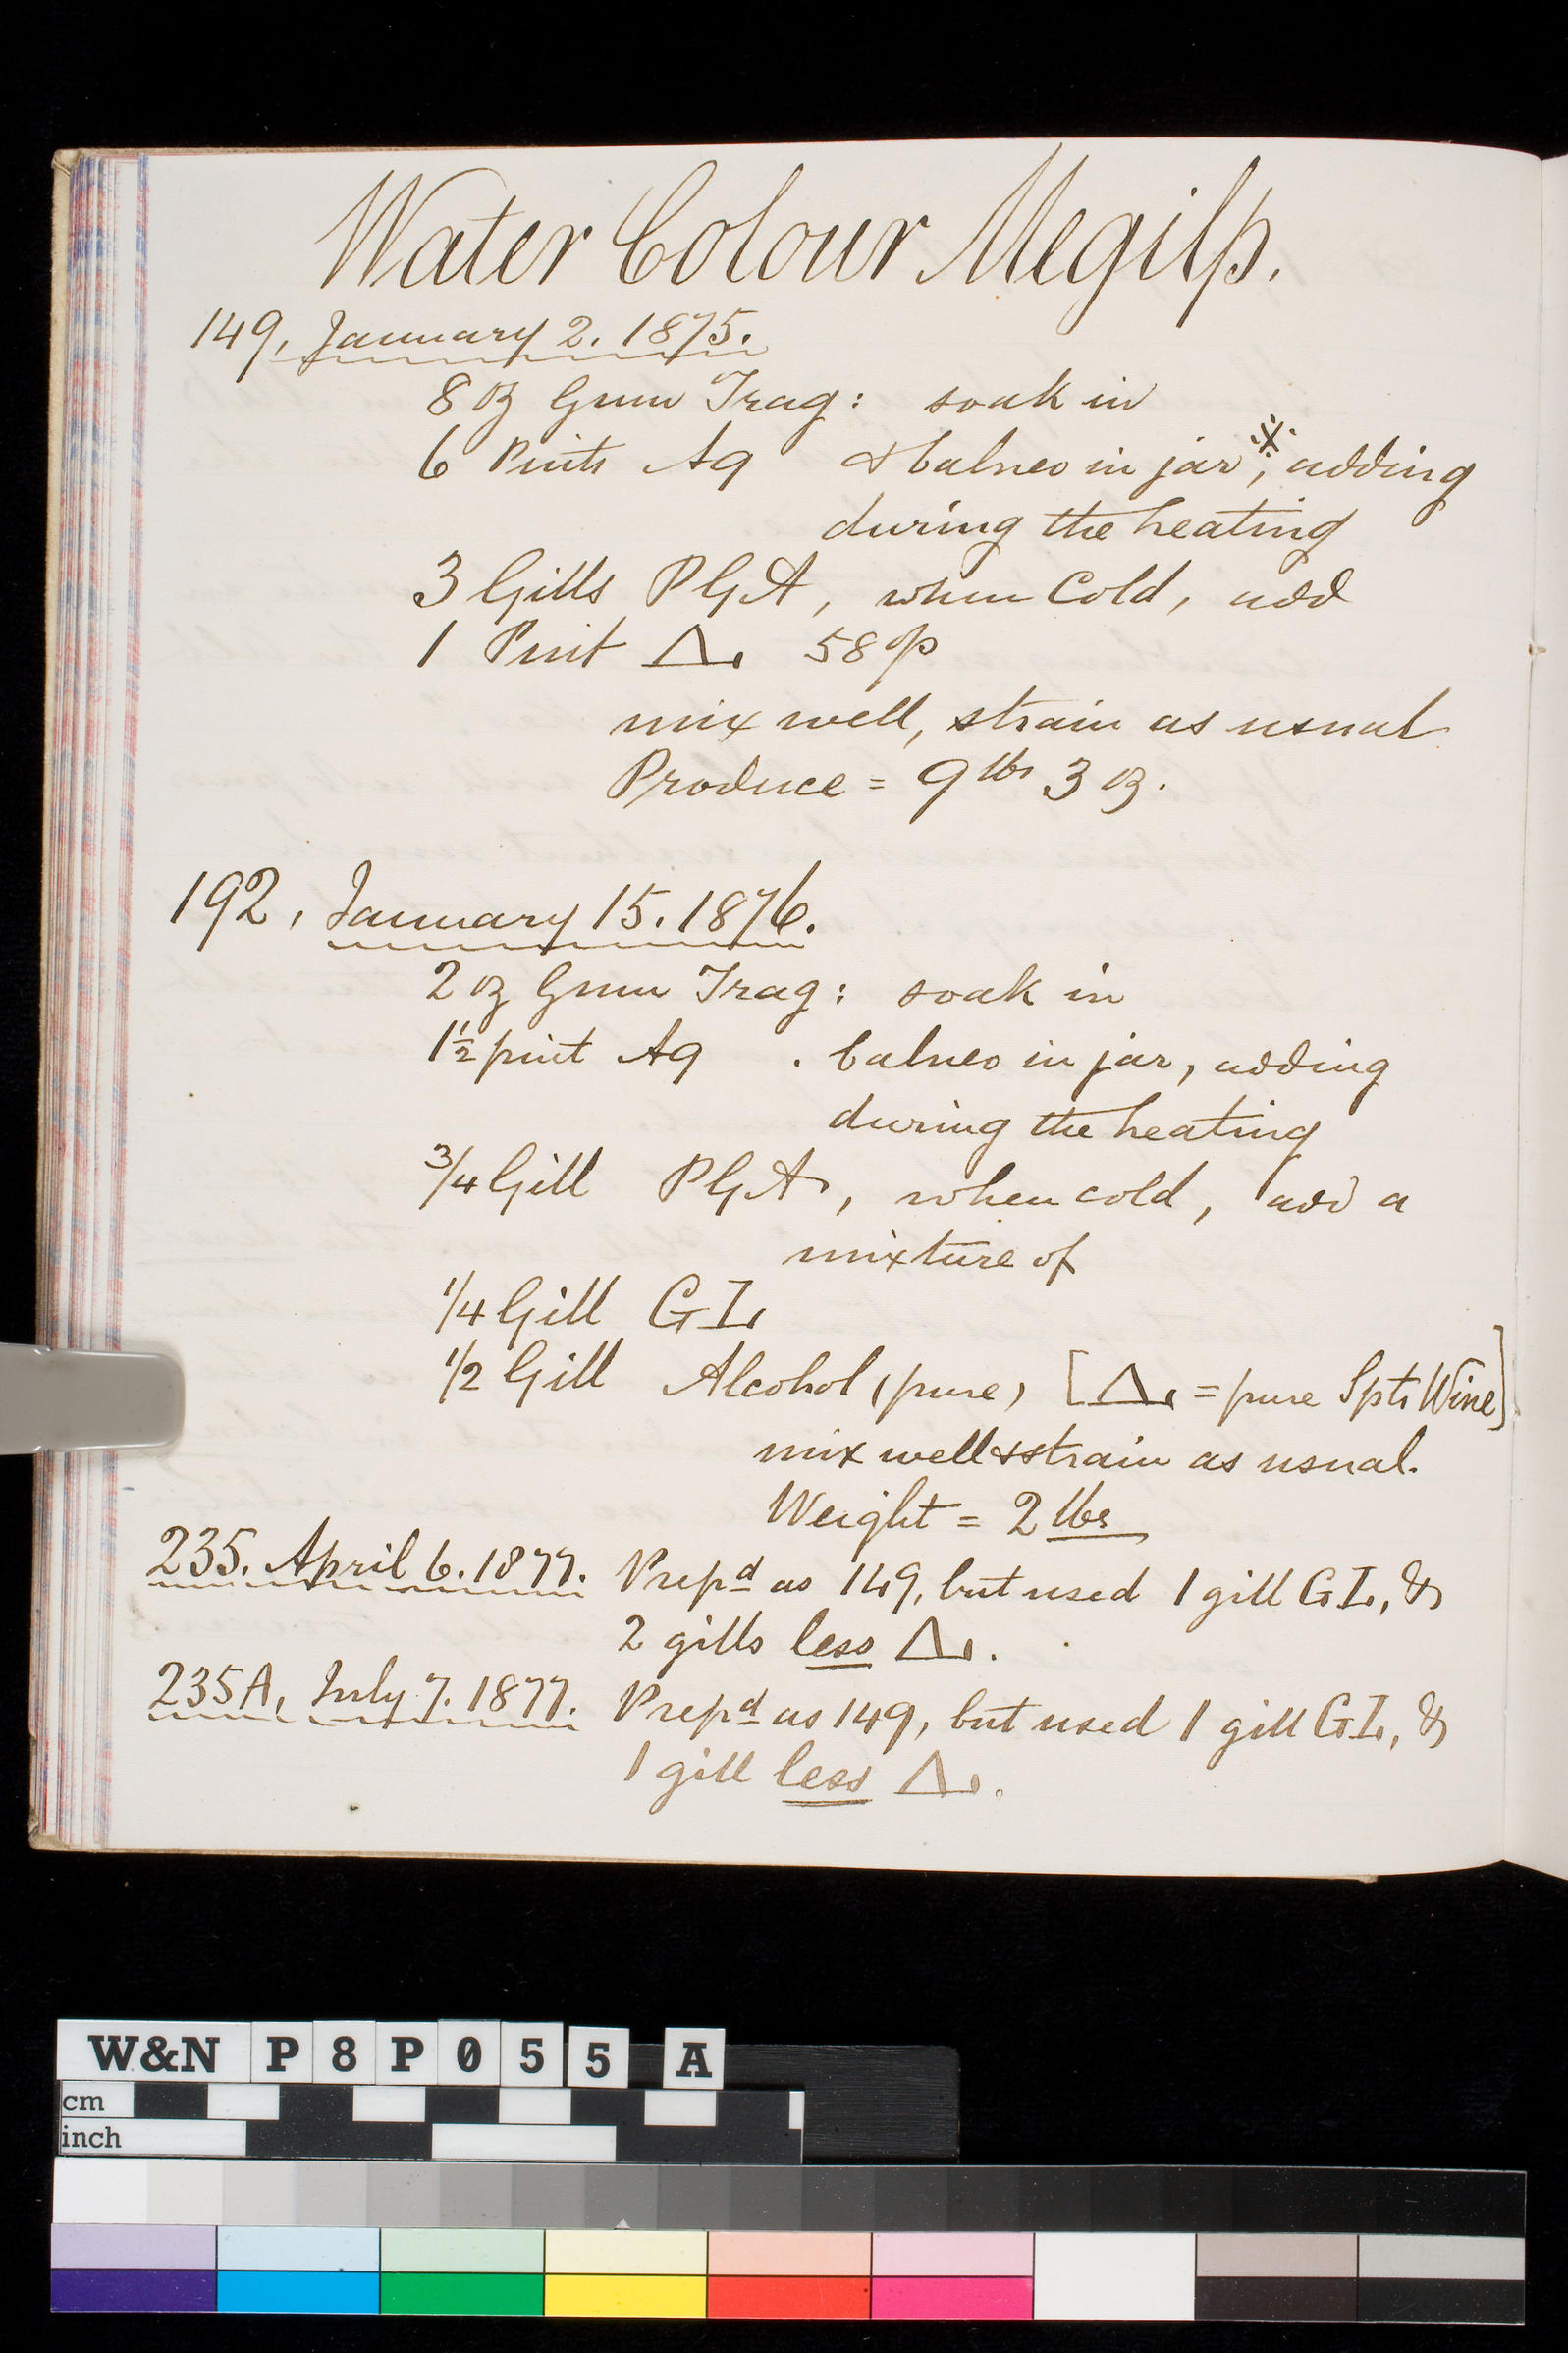 Water Colour Megilp.
149, January 2. 1875.
8 oz Gum Trag: soak in
6 Pints Aq & balneo in jar※, adding
during the heating
3 Gills PGA, when Cold, add
1 Pint Δ. 58 op
mix well, strain as usual
Produce = 9 lbs 3 oz.
192, January 15. 1876.
2 oz Gum Trag: soak in
1½ pint Aq . balneo in jar, adding
during the heating
3/4 Gill PGA, when cold, add a
mixture of
1/4 Gill GL
1/2 Gill Alcohol (pure) [Δ. = pure Spts Wine]
mix well & strain as usual.
Weight = 2 lbs
235. April 6. 1877. Prepd as 149, but used 1 gill GL, &
2 gills less Δ.
235A, July 7. 1877. Prepd as 149, but used 1 gill GL, &
1 gill less Δ.
W&N P8P055 A
cm
inch